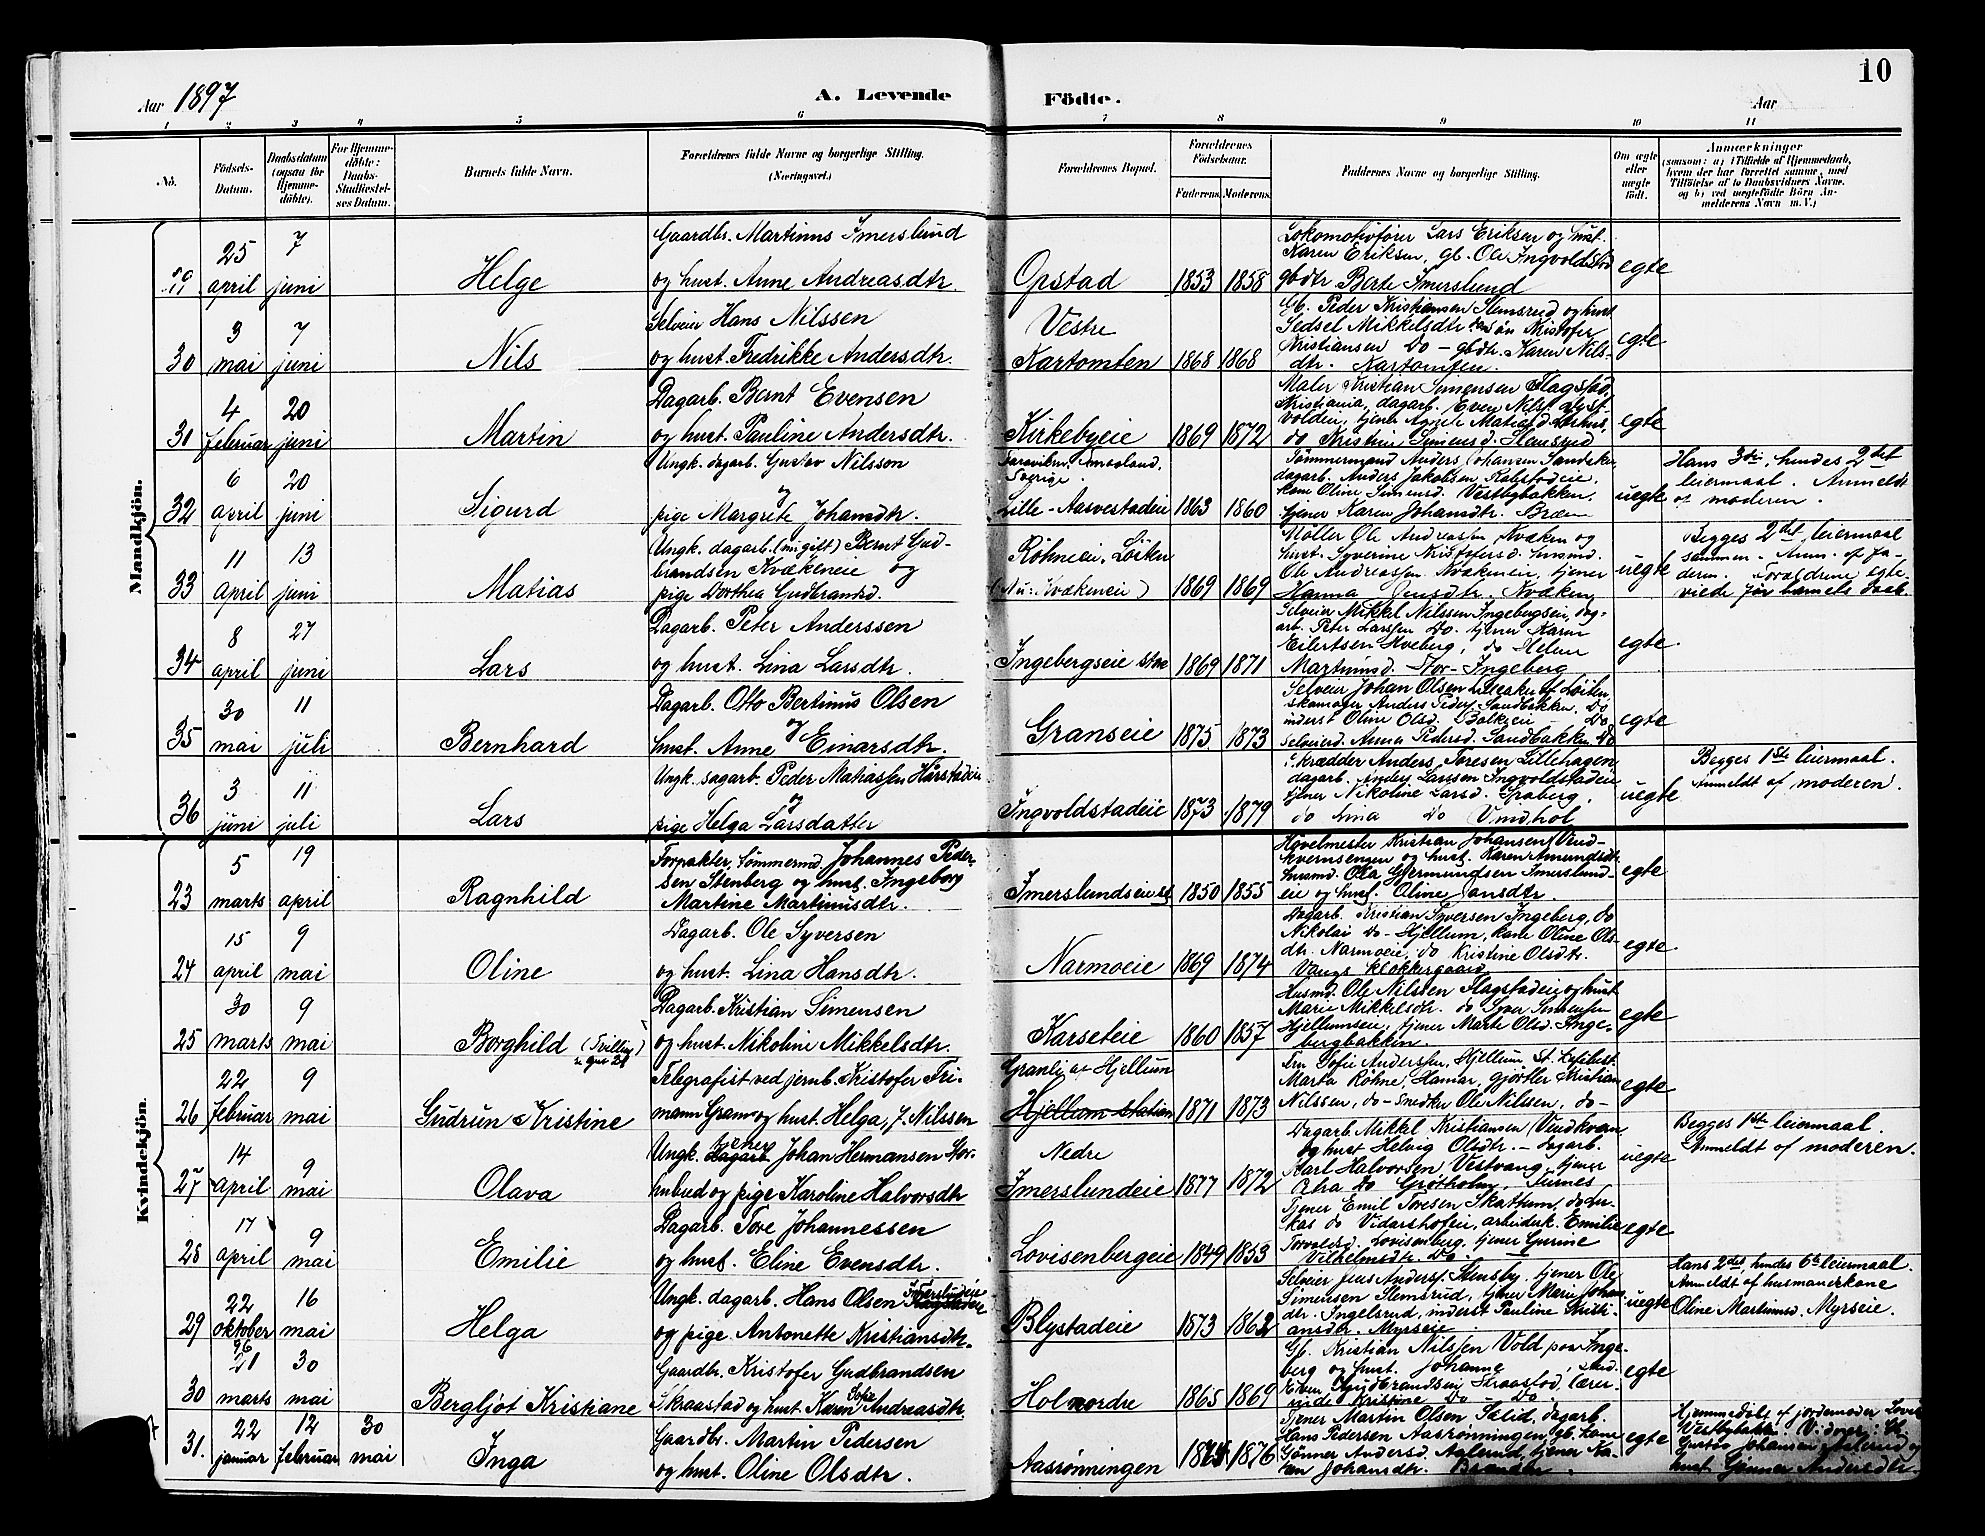 10
Aar 1897
A. Levende Födte.
Aar
1 2 3 4 5 6 7 8 9 10 11
No.
Födsels-Datum.
Daabsdatum (ogsaa for Hjemme-döbte).
For Hjemme-döbte: Daabs-Stadfæstel-ses Datum.
Barnets fulde Navn.
Forældrenes fulde Navne og borgerlige Stilling.
(Næringsvei.)
Forældrenes Bopæl.
Forældrenes Födselsaar.
Faderens. Moderens.
Faddernes Navne og borgerlige Stilling.
Om ægte eller uægte födt.
Anmærkninger
(saasom: a) i Tilfælde af Hjemmedaab, hvem der har forrettet samme, med Tilföielse af to Daabsvidners Navne, og b) ved uægtefödte Börn Anmelderens Navn m. V.)
Mandkjön.
25 april
7 juni
Helge
Gaardbr. Martinus Imerslund
og hust. Anne Andreasdtr.
Opstad 1853 1858
Lokomotivfører Lars Eriksen og hust.
Karen Eriksen, gb. Ole Ingvoldstad
gbdtr Berte Imerslund
egte
30
3 mai
7 juni
Nils
Selveier Hans Nilssen
og hust. Fredrikke Andersdtr.
Vestre
Kartomten 1868 1868
Gb. Peder Kristiansen Slemsrud og hust
Sedsel Mikkelsdtr søn Kristofer
Kristiansen Do – gbdtr. Karen Nils-
dtr. Kartomten.
egte
31
4 februar
20 juni
Martin
Dagarb. Bernt Evensen
og hust. Pauline Andersdtr.
Kirkebyeie 1869 1872
Maler Kristian Simensen Flagstad,
Kristiania, dagarb. Even Nils.
do Kristine Simensd. Slemsrud
egte
32
6 april
20 juni
Sigurd
Ungk. dagarb. Gustav Nilsson
og
pige Margrete Johansdtr.
Sverige.
Lille-Aasvestadeie 1863 1860
Tømmermand Anders Johansen Sandaker
dagarb. Anders Jakobsen Rolstadeie,
kone Oline Simensd. Vestbybakken,
tjener Karen Johansdtr. Bræn
uegte
Hans 3die, hendes 2det
leiermaal. Anmeldt
af moderen.
33
11 april
13 juni
Matias
Ungk. dagarb. (nu gift) Bernt Gud-
brandsen Kvækeneie og
pige Dorthea Gudbrandsd.
Röhneeie, Löiten
(Nu: Kvækeneie) 1869 1869
Møller Ole Andreasen Kvæken og
hust. Syverine Kristofersd. husmd.
Ole Andreassen Kvækeneie, tjener
Hanna Jensdtr. Kvæken
uegte
Begges 2det leiermaal
sammen. Anm. af fa-
deren. Forældrene egte-
viede før barnets daab.
34
8 april
27 juni
Lars
Dagarb. Peter Anderssen
og hust. Lina Larsdtr.
Ingebergseie store 1869 1871
Selveier Mikkl Nilssen Ingebergseie, dag-
arb. Peter Larssen Do. tjener Karen
Eilertsen Hveberg, do Helene
Martinusd. Stor-Ingeberg
egte
35
30 mai
11 juli
Bernhard
Dagarb. Otto Bertinus Olsen
og
hust. Anne Einarsdtr.
Granseie 1875 1873
Selveier Johan Olsen Lilleaker Löiten,
skomager Anders Peders Sandbakken. Do
inderst Oline Olsd. Do
selveierd. Anna Pedersd. Sandbakken. Do
egte
36
3 juni
11 juli
Lars
Ungk. sagarb. Peder Matiassen Hårstadeie
og
pige Helga Larsdatter
Ingvoldstadeie 1873 1879
Skrædder Anders Toresen Lillehagen,
dagarb. Anders Larssen Ingvoldstadeie
tjener Nikoline Larsd. Spaberg,
do Lina Do Vindhol
uegte
Begges 1ste leiermaal.
Anmeldt af moderen.
Kvindekjön.
23
5 marts
19 april
Ragnhild
Forpakter, tømmermd. Johannes Peder-
sen Stenberg og hust. Ingeborg
Martine Martinusdtr.
Imerslundseie 1850 1855
Høvelmester Kristian Johansen Vind-
kvernsengen og hust. Karen Amundsdtr.
husmd. Ola Gjermundsen Imerslund-
eie og hust. Oline Jansdtr
egte
24
15 april
9 mai
Oline
Dagarb. Ole Syversen
og hust. Lina Hansdtr.
Narmoeie 1869 1874
Dagarb. Kristian Syversen Ingeberg, do
Nikolai Do – Hjellum, kone Oline Ols-
dtr. Narmoeie, do Kristine Olsdtr.
Vangs klokkergaard
egte
25
30 marts
9 mai
Borghild (Tvilling
Dagarb. Kristian Simensen
og hust. Nikoline Mikkelsdtr.
Karseteie 1860 1857
Husmd. Ole Nilssen Flagstadeie og hust
Marie Mikkelsdtr. do Syver Simensen
Hjellumseie, tjener Marte Olsd. Inge-
bergbakken.
egte
26
22 februar
9 mai
Gudrun Kristine
Telegrafist ved jernb. Kristofer Tri-
mann Gram og hust. Helga, f. Nilssen
Granli af Hjellum
Hjellum station 1871 1873
Fru Sofie Anderssen, Hjellum St.
Marta Röhne, Hamar, gjørtler Kristian
Nilssen, do – snedker Ole Nilssen, do –
egte
27
14 april
9 mai
Olava
Ungk. Dagarb Johan Hermansen Stor-
hubud og pige Karoline Halvorsdtr
Nedre
Imerslundeie 1877 1872
Dagarb. Mikkl Kristiansen Vindkværn
og hust Helvig Olsdtr. – dagarb.
Karl Halvorsen, Vestvang, tjener
Olea Do Grötholm, Furnes
uegte
Begges 1ste leiermaal.
Anmeldt af moderen.
28
17 april
9 mai
Emilie
Dagarb. Tore Johannessen
og hust. Eline Evensdtr.
Lovisenbergeie 1849 1853
Tjener Emil Toresen Skattum, do Lu-
kas do Vidarshofeie, arbeidsk. Emilie
Torvaldsd. Lovisenberg, tjener Gurine
Vilhelmsdtr. Do.
egte
29
22 oktober 96
16 mai
Helga
Ungk. dagarb. Hans Olsen Imerslundeie
og pige Antonette Kristiansdtr.
Blystadeie 1873 1862
Selveier Jens Anders. Stensby, tjener Ole
Simensen Slemsrud, tjener Marie Johans-
dtr. Ingelsrud, inderst Pauline Kristi-
ansdtr. Myrseie
uegte
Hans 2det, hendes 6te leiermaal.
Anmeldt af husmandskone
Oline Martinusd. Myrseie.
30
21 marts
30 mai
Bergljot Kristiane
Gaardbr. Kristofer Gudbrandsen
Skraastad og hust. Karen Sofie Andreasdtr.
Hol nordre 1865 1869
Gb. Kristian Nilssen Vold paa Inge-
berg og hust. Johanne
Even Gudbrandsen Skraastad, lærer-
inde Kristine Do Do.
egte
31.
22 januar
12 februar
30 mai
Inga
Gaardbr. Martin Pedersen
og hust. Oline Olsdtr.
Aasrønningen 1876
Tjener Martin Olsen Salid, dagarb.
Hans Pedersen Aasrønningen, gb. kone
Gønner Andersd. Aalerud, tjener Ka-
ren Johansdtr.
egte
Hjemmedøbt af jordemoder Lovise
Vestbybakk. Vidner: Gb.
Gustav Johansen Aalerud og
hust. Gønner Andersdtr.